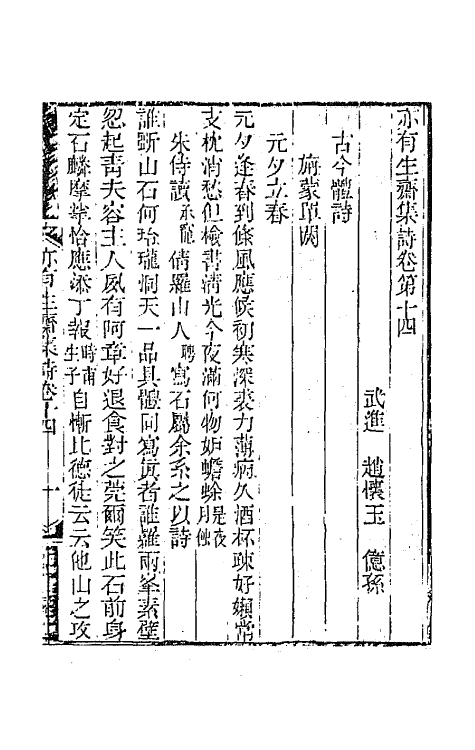 亦有生齋集詩卷第十四
武進 趙懷玉 億孫
古今體詩
旃蒙單閼
元夕立春
元夕逢春到條風應候初寒深裘力薄病久酒杯疎好嬾常
支枕消愁但檢書清光今夜滿何物妒蟾蜍是夜月蝕
朱侍讀承寵倩羅山人聘寫石屬余系之以詩
誰斲山石何玲瓏洞天一品具體同寫眞者誰羅兩峯素壁
忽起靑夫容主人夙有阿章好退食對之莞爾笑此石前身
定石麟摩挲恰應添丁報時甫生子自慚比德徒云云他山之攻
亦有生齋集詩卷十四 一